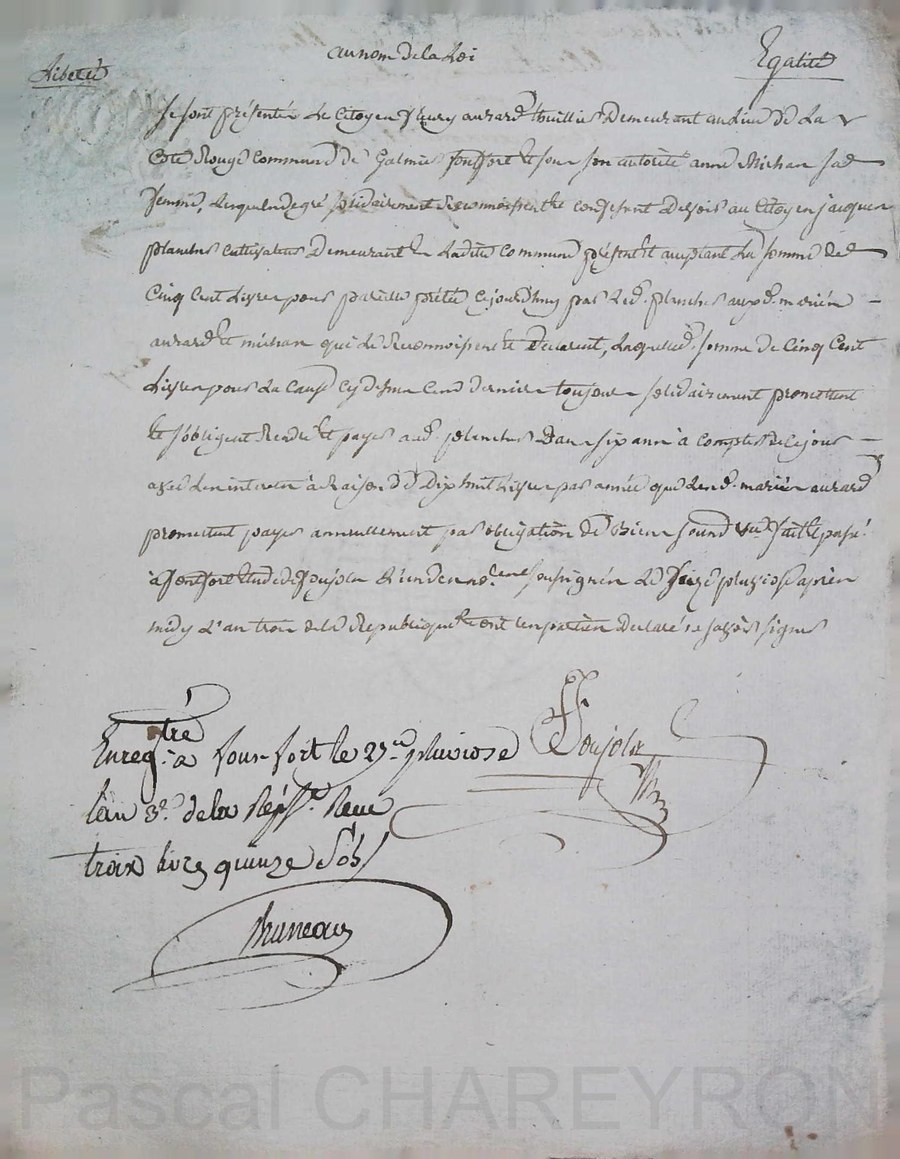 Liberté au nom de la Loi Egalité
Se sont présentés Le Citoyen fleury aurard Demeurant au Lieu De La
Cote Rouge Commune de Galmier fontfort et sous son autorité anne Michau sa
femme, Lesquels de gré solidairement Reconnoissent et confessent Devoir au Citoyen jacques
planches cultivateur Demeurant en Ladite Commune présent et acceptant La somme de
Cinq Cent Livres pour pareille prétée Cejourdhuy par Led. planches auxd. mariés
aurard et michau qui Le Reconnoissent et Declarent, Laquelle somme de Cinq Cent
Livres pour La Cause Cy dessus Ces Derniers toujours solidairement promettent
et s'obligent Rendre et payer aud. planches Dans six ans à Compter de Ce jour
avec Les interets à Raison de Dix huit Livres par année que Lesd. mariés aurard
promettent payer annuellement par obligation de Biens fait et passé
à fontfort Etude de Soujols L'un des no.res soussignés Le pluviose après
midy L'an trois de la Republique et ont Les parties Declaré ne savoir signer
Soujols
Enreg.tré à fonfort le 23 pluviose
lan 3.e de la Rép.e Reçu
troix livres quinze Sols
Bruneau
Pascal CHAREYRON